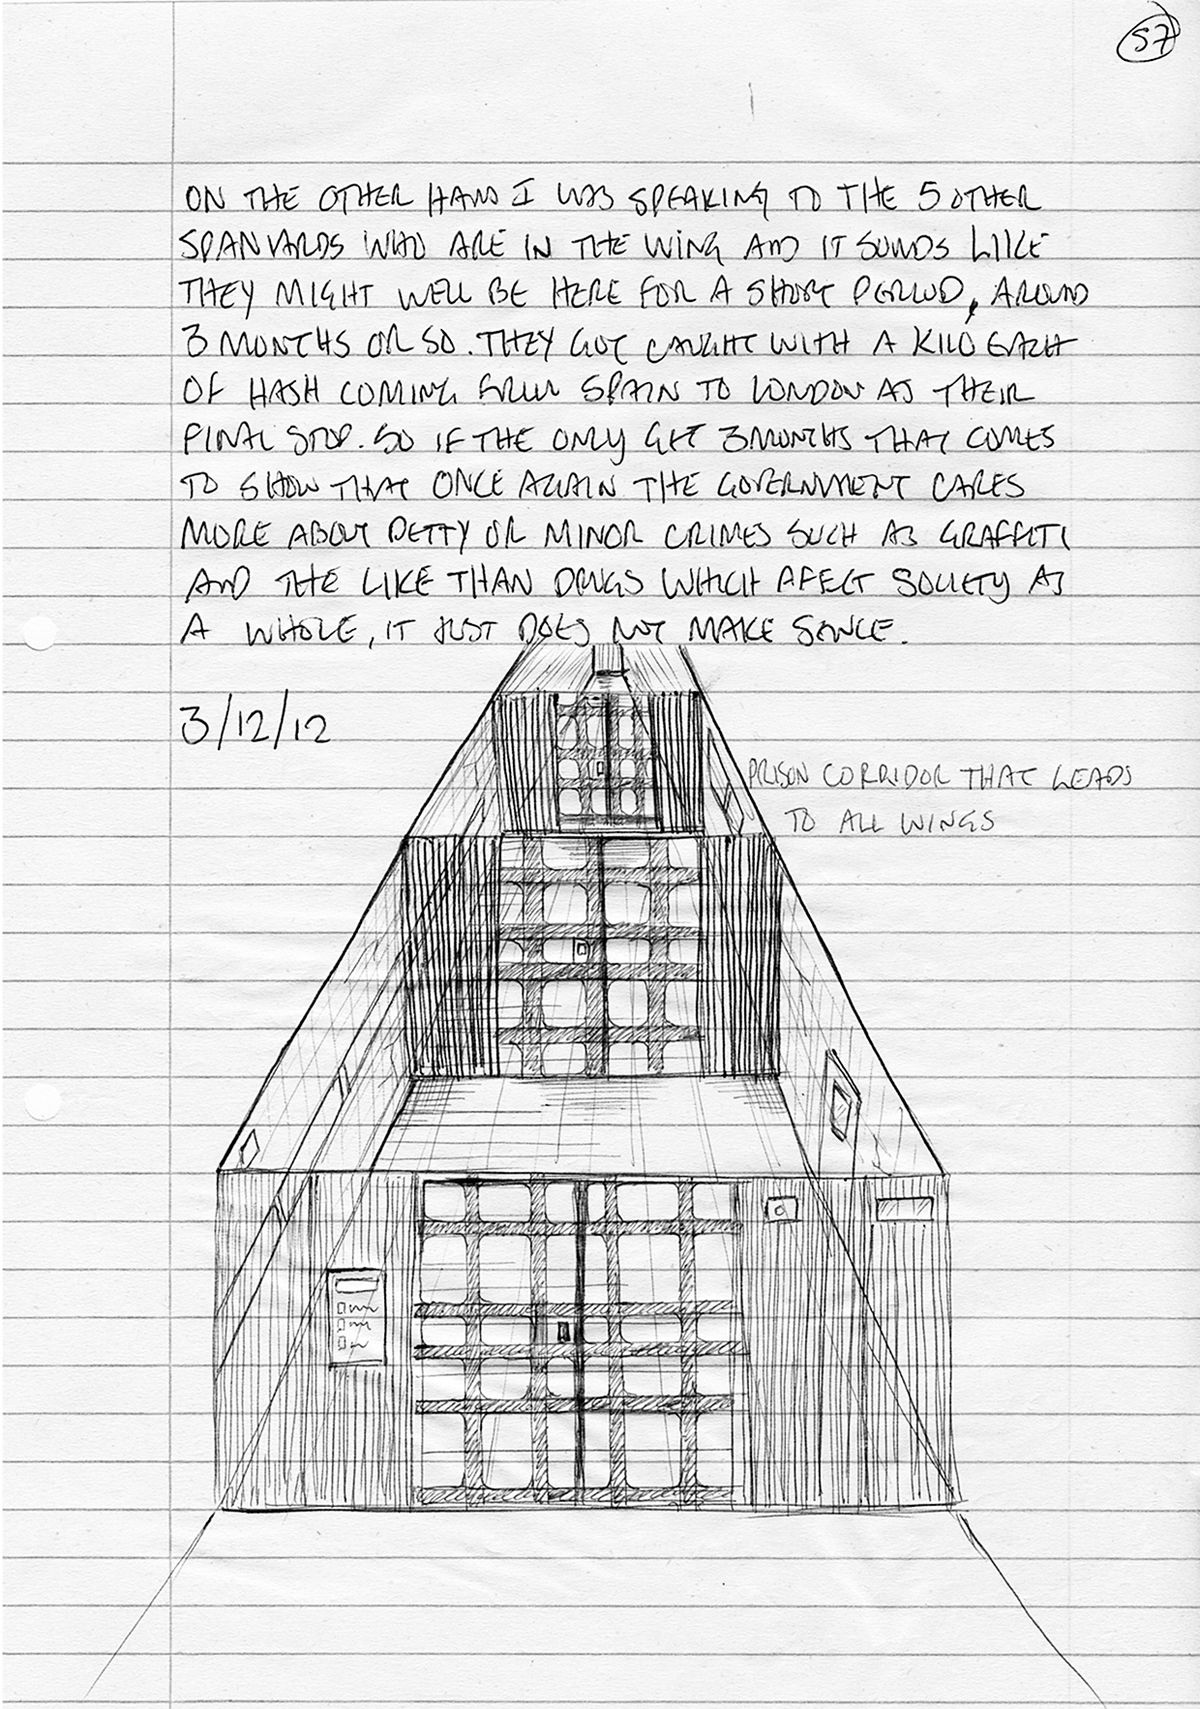 57
ON THE OTHER HAND I WAS SPEAKING TO THE 5 OTHER
SPANYARDS WHO ARE IN THE WING AND IT SUNDS LIKE
THEY MIGHT WELL BE HERE FOR A SHORT PERIOD, AROUND
3 MONTHS OR SO. THEY GOT CAUGHT WITH A KILO EACH
OF HASH COMING FROM SPAIN TO LONDON AS THEIR
FINAL STOP. SO IF THE ONLY GET 3 MONTHS THAT COMES
TO SHOW THAT ONCE AGAIN THE GOVERNMENT CARES
MORE ABOUT PETTY OR MINOR CRIMES SUCH AS GRAFFITI
AND THE LIKE THAN DRUGS WHICH AFECT SOCIETY AS
A WHOLE, IT JUST DOES NOT MAKE SENCE.
3/12/12
PRISON CORRIDOR THAT LEADS
TO ALL WINGS